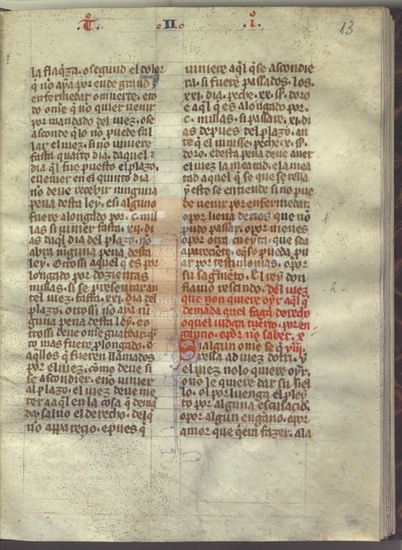 .T. .II. .I.
13
la flaq̃za. o segund el dolor
q̃ no aya por ende grand
enfermedat o muerte. e to
do om̃e q̃ no quier uenir
por mandado del iuez. o se
asconde q̃ lo no puede fa
lar el iuez. si no uiniere
fasta quarto dia. daquel
dia q̃l fue puesto el plazo.
e uenier en el quinto dia
no deue recebir ninguna
pena desta ley. e si alguno
fuere alongado por .c. mi
llas. si uinier fasta .xi. di
as daq̃l dia del plazo. no
abra ninguna pena desta
ley. otrossi aquel q̃ es
longado por dozientas
millas. si se presentar an
tel iuez. fasta .xxi. dia del
plazo. otrossi no aya ni
guna pena desta ley. e o
trossi deue om̃e guardar q̃
to mas fuere alongado. o
aq̃llos q̃ fueren llamados
por el iuez. como deue si
se ascondier. e no uinier
al plazo. el iuez deue me
ter a aq̃l en la cosa q̃ dema
da. saluo el derecho. del q̃
no apareçio. e pues q̃
uiniere aq̃l q̃ se ascondie
ra. si fuere passados. los
.xxi. dia. peche .xx. ss. do ro
e aq̃l q̃ es alongado por
.c. millas. si passare .xi. di
as depues del plazo. an
te q̃ el uiniesse. peche .x. ss.
doro. e desta pena deue auer
el iuez la meatad. e la mea
tad aquel q̃ se querella
y esto se entiende si no pue
de uenir por enfermedat.
o por luuia de rios que no
pudo passar. o por nieues
o por otra cueyta que sea
apareçient. e q̃ so pueda pu
ar por testimonias. o por
su sagramẽto. El rey don
flauio resçindo. Del iuez
que non quiere oyr aq̃l q̃
demanda quel faga derecho
o quel iudga tuerto. por en
ganno. o por no saber. x
viii.
Si algun om̃e se q̃
rella ad iuez dotri. y
el iuez nolo quiere oyr.
o no le quiere dar su se
llo. ol por luenga el pley
to por alguna escusacio.
o por algun engano. o por
amor que q̃em fazer. ala